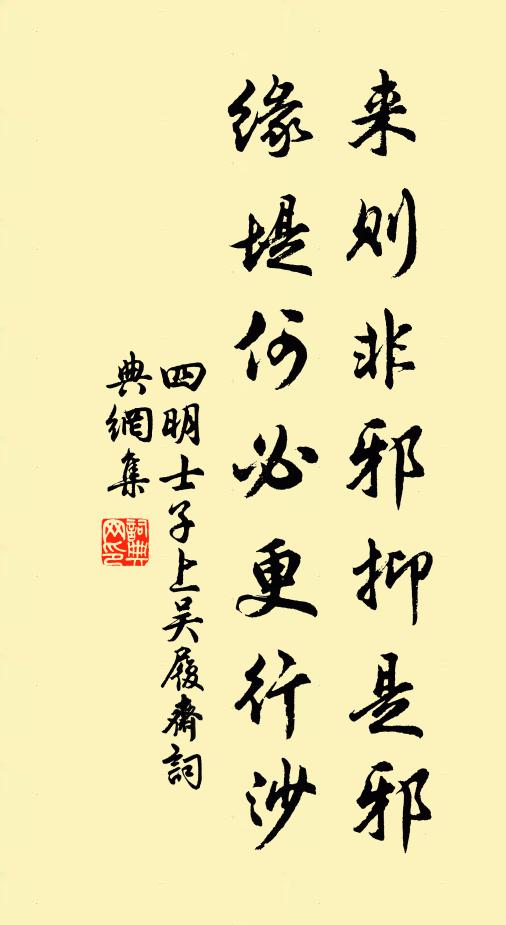 来则非邪抑是邪
缘堤何必更行沙
四明士子上吴履斋詞
典網集
詞典网印